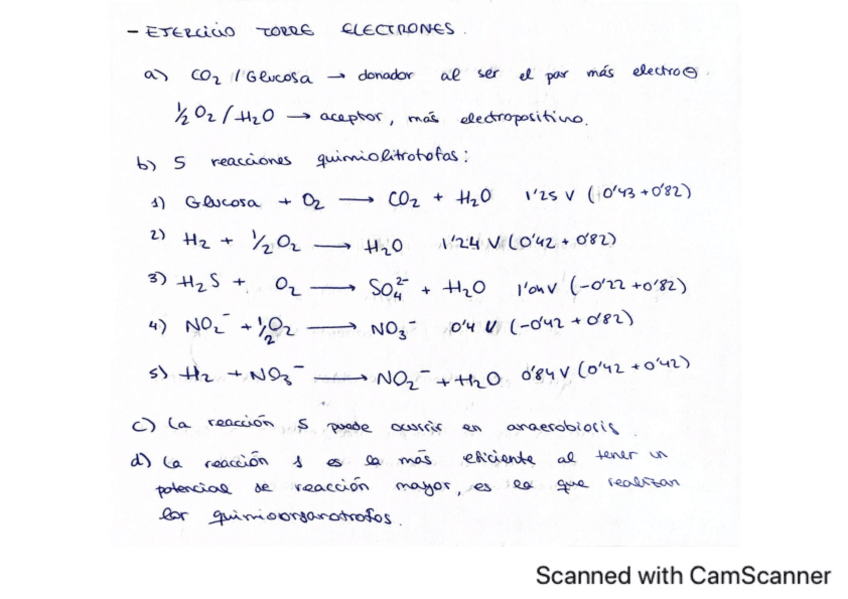 - EJERCICIO TORRE ELECTRONES.
a) CO2 / Glucosa → donador al ser el par más electro⊖.
½ O2 / H2O → aceptor, más electropositivo.
b) 5 reacciones quimiolitotofas:
1) Glucosa + O2 → CO2 + H2O 1'25 V (0'43 + 0'82)
2) H2 + ½ O2 → H2O 1'24 V (0'42 + 0'82)
3) H2S + O2 → SO4²⁻ + H2O 1'04V (-0'22 + 0'82)
4) NO2⁻ + ½ O2 → NO3⁻ 0'4 V (-0'42 + 0'82)
5) H2 + NO3⁻ → NO2⁻ + H2O 0'84 V (0'42 + 0'42)
c) La reacción 5 puede ocurrir en anaerobiosis.
d) La reacción 1 es la más eficiente al tener un
potencial de reacción mayor, es la que realizan
los quimioorganotrofos.
Scanned with CamScanner